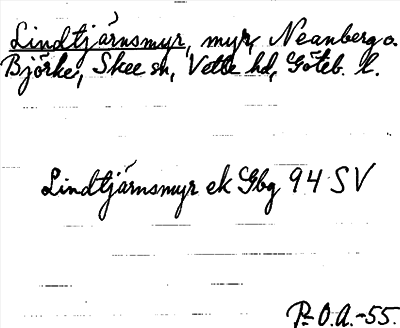 Lindtjärnsmyr, myr, Neanberg o.
Björke, Skee sn, Vette hd, Göteb. l.
Lindtjärnsmyr ek Gbg 94 SV
P.O.A.-55.